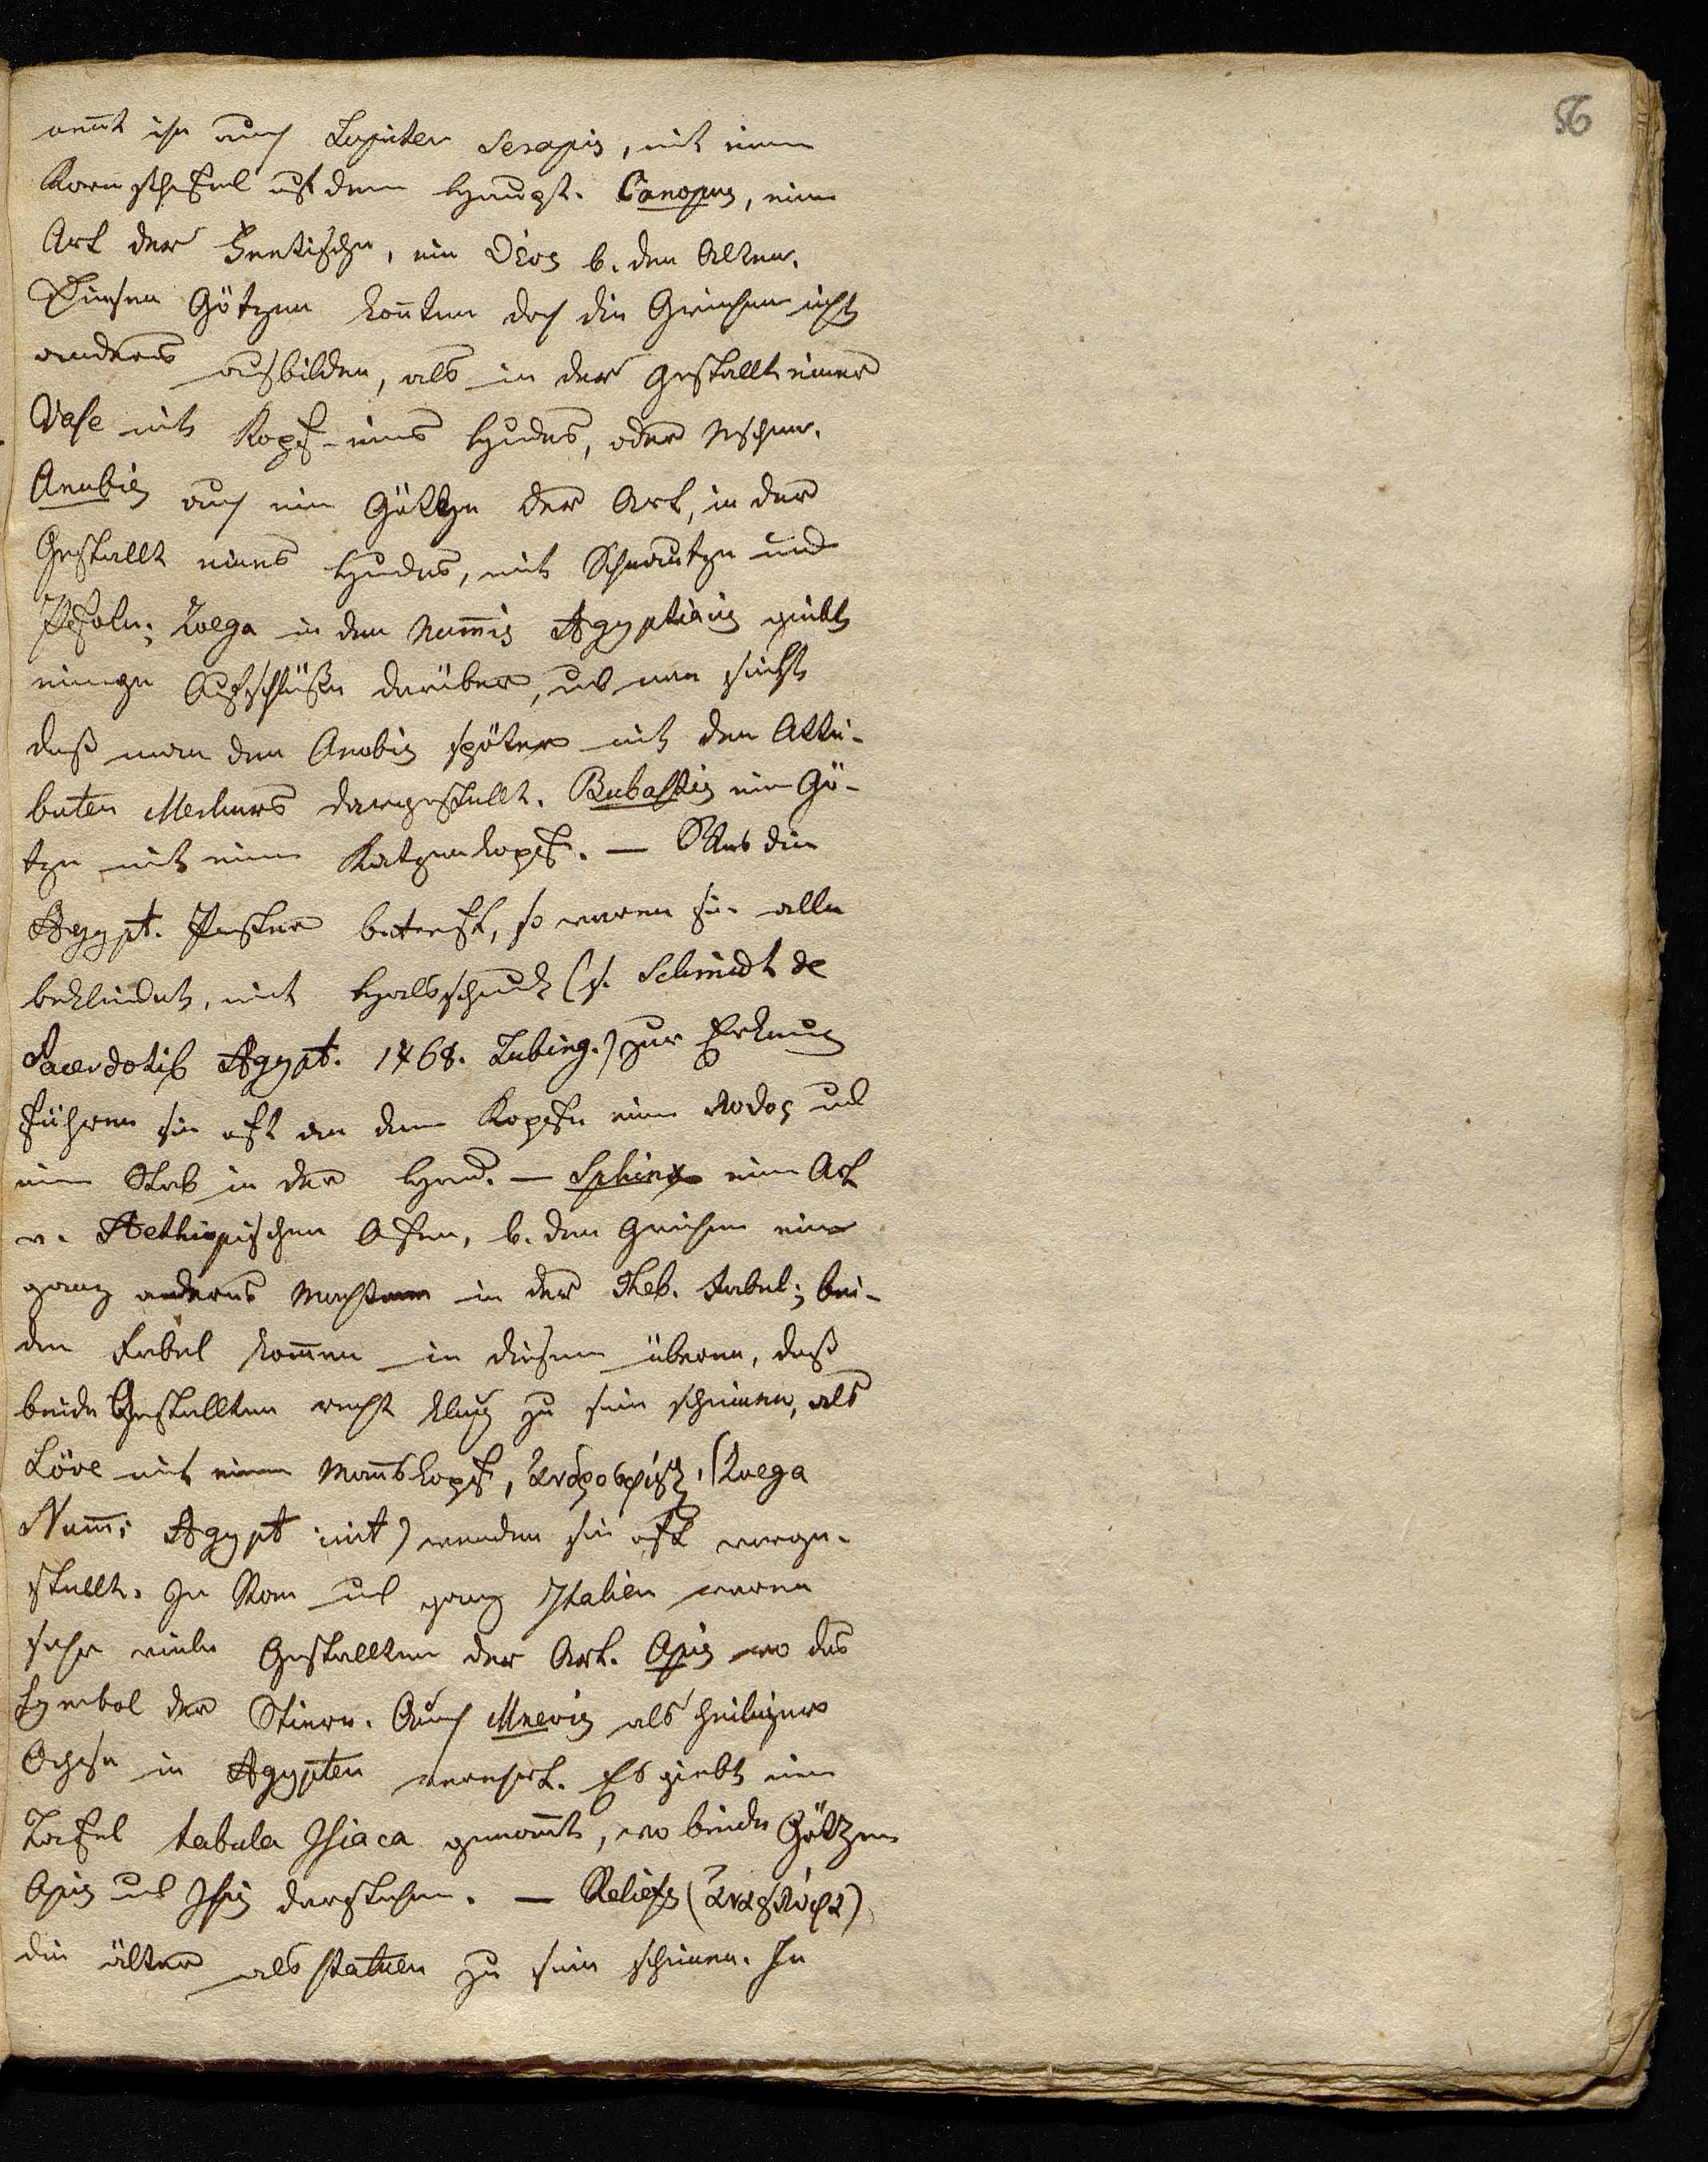 56
nent ihn auch Jupiter Serapis, mit einem
Kornscheffel auf dem Haupt. Canopus, eine
Art der Fetische, ein θεος b. den Alten.
Diesen Götzen konnten doch die Griechen nicht
anders ausbilden, als in der Gestallt einer
Vase mit Kopf eines Hundes, oder Menschen.
Anubis auch ein Götze der Art, in der
Gestallt eines Hundes, mit Schnautze und
Pfoten; Zoega in den Nummis Agyptiacis giebt
einige Aufschlüße darüber, und man sieht
daß man den Anobis später mit den Attri-
buten Merkurs dargestellt. Bubastis ein Gö-
tze mit einem Katzenkopf. — Was die
Agypt. Priester betrefft, so waren sie alle
bekleidet, mit Halsschmuck (s. Schmidt de
Sacerdotib Agypt. 1768. Tubing.) zur
führen sie oft an dem Kopfe eine und
einen Stab in der Hand. — Sphinx eine Art
v. Aethiopischen Affen, b. den Griechen ein
ganz anderes in der Theb. Fabel; bei-
den Fabel kommen in diesem überein, daß
beide Gestallten recht klug zu sein scheinen, als
Löve mit einem Mannskopf, ανδροσφιγξ, (Zoega
Numi Agypt init) werden sie oft vorge-
stellt. In Rom und ganz Italien waren
sehr viele Gestallten der Art. Apis wo das
Symbol der Stiern. Auch Mnevis als heiliger
Ochse in Agypten verehrt. Es giebt eine
Tafel tabula Isiaca genannt, wo beide Götzen
Apis und Isis darstehen. — Reliefs (αναγλυφα)
die älter als Statuen zu sein scheinen. In